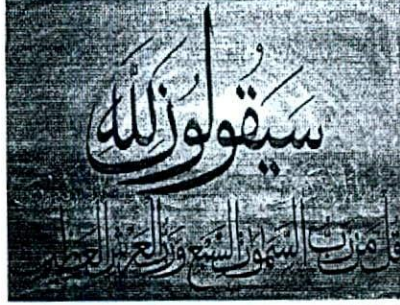 سَيَقُولُونَ لِلَّهِ
قل من رب السموات السبع ورب العرش العظيم